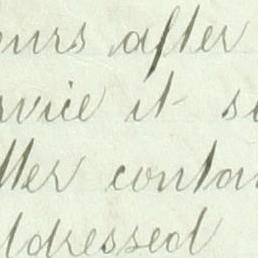 ours after
rvice it s
tter contai
ddressed